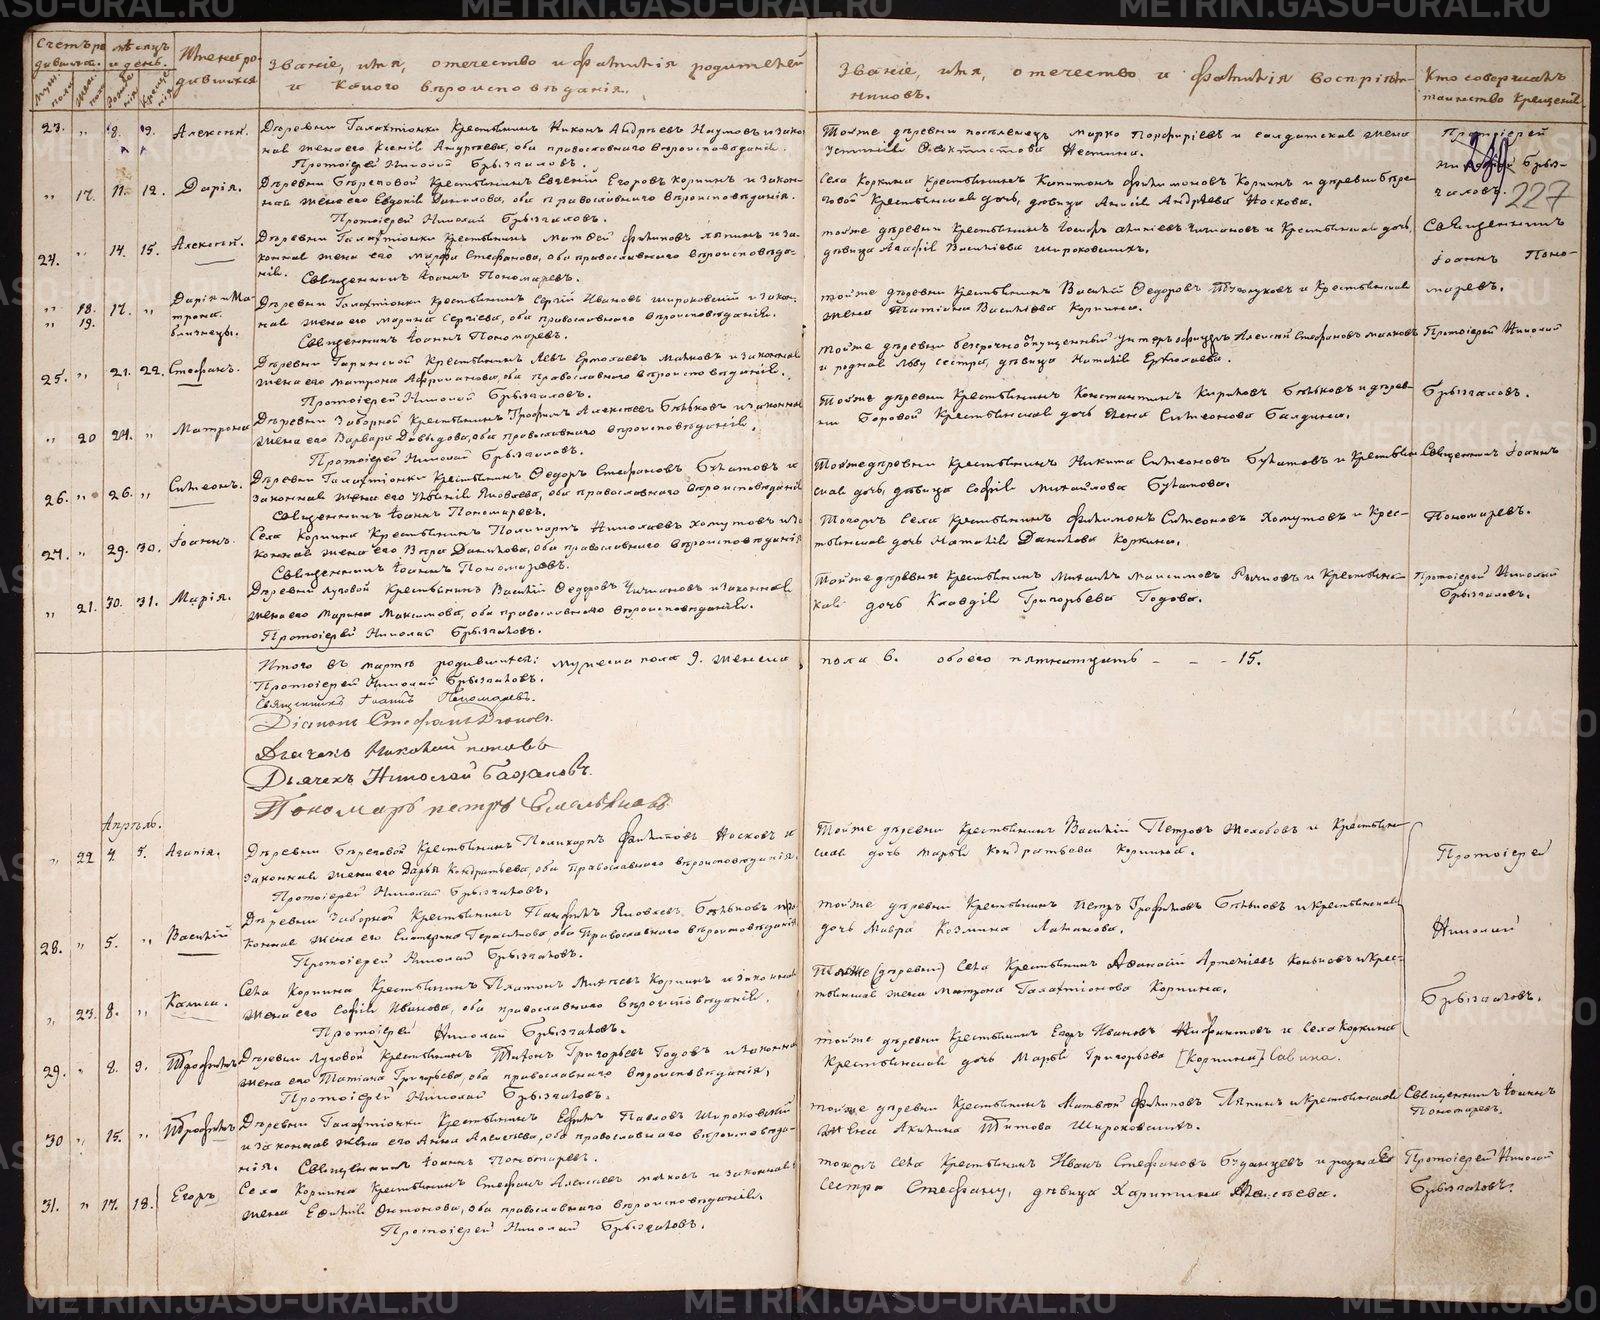 METRIKI.GASU-URAL.RU
Счетъ ро-
дивших.
мѣсяцъ
и день.
Имена ро-
дившихся
Званіе, имя, отечество и фамилія родителей
и какого вѣроисповѣданія.
Званіе, имя, отечество и фамилія воспріем-
никовъ.
Кто совершалъ
таинство крещенія.
23. " 8. 9. Алексѣй.
Деревни Галахтіонки Крестьянинъ Никонъ Андреевъ Наумовъ и зако-
ная жена его Ксенія Андреева, оба православнаго вѣроисповѣданія.
Протоіерей Николай Брызгаловъ.
Тойже деревни поселенецъ Марко Порфирьевъ и солдатская жена
Устинія Ѳеоктистова Нестина.
Протоіерей
Брыз-
галовъ. 227
" 17. 11. 12. Дарія.
Деревни Береговой Крестьянинъ Евгеній Егоровъ Коркинъ и закон-
ная жена его Евдокія Данилова, оба православнаго вѣроисповѣданія.
Протоіерей Николай Брызгаловъ.
Села Коркина Крестьянинъ Капитонъ Филимоновъ Коркинъ и деревни Бере-
говой Крестьянская дочь, дѣвица Анисія Андреева Носкова.
24. " 14. 15. Алексѣй.
Деревни Галахтіонки Крестьянинъ Матвей Филиповъ Ляпинъ и за-
конная жена его Марфа Стефанова, оба православнаго вѣроисповѣда-
нія. Священникъ Іоаннъ Пономаревъ.
тойже деревни Крестьянинъ Іосифъ Чичиановъ и Крестьянская дочь,
дѣвица Агафія Васильева Широковскихъ.
Священникъ
Іоаннъ Поно-
маревъ.
" 18. 17. " Дарія и Ма-
" 19. трона
близнецы.
Деревни Галахтіонки Крестьянинъ Сергій Ивановъ Широковскій и закон-
ная жена его Марина Сергіева, оба православнаго вѣроисповѣданія.
Священникъ Іоаннъ Пономаревъ.
тойже деревни Крестьянинъ Василій Ѳедоровъ и Крестьянская
жена Татіана Васильева Коркина.
25. " 21. 22. Стефанъ.
Деревни Крестьянинъ Левъ Ермолаевъ Малковъ и законная
жена его Матрона Африканова, оба православнаго вѣроисповѣданія.
Протоіерей Николай Брызгаловъ.
тойже деревни безсрочно отпущенный унтеръ офицеръ Алексѣй Стефановъ Малковъ
и родная Льву сестра, дѣвица Наталія Ермолаева.
Протоіерей Николай
Брызгаловъ.
" 20 24. " Матрона
Деревни Заборной Крестьянинъ Трофимъ Алексѣевъ Бѣльковъ и законная
жена его Варвара Давыдова, оба православнаго вѣроисповѣданія,
Протоіерей Николай Брызгаловъ.
Тойже деревни Крестьянинъ Константинъ Кириловъ Бѣльковъ и дерев-
ни Боровой Крестьянская дочь Елена Симеонова Балдина.
26. " 26. " Симеонъ.
Деревни Галахтіонки Крестьянинъ Ѳедоръ Стефановъ Булатовъ и
законная жена его Яковлева, оба православнаго вѣроисповѣданія
Священникъ Іоаннъ Пономаревъ.
Тойже деревни Крестьянинъ Никита Симеоновъ Булатовъ и Крестьян-
ская дочь, дѣвица Софія Михайлова Булатова.
Священникъ Іоаннъ
Пономаревъ.
27. " 29. 30. Іоаннъ.
Села Коркина Крестьянинъ Поликарпъ Николаевъ Хомутовъ и за-
конная жена его Вѣра Данилова, оба православнаго вѣроисповѣданія
Священникъ Іоаннъ Пономаревъ.
Тогожъ Села Крестьянинъ Филимонъ Симеоновъ Хомутовъ и Крес-
тьянская дочь Наталія Данилова Коркина.
" 21. 30. 31. Марія.
Деревни Луговой Крестьянинъ Василій Ѳедоровъ Чичиановъ и законная
жена его Марина Максимова, оба православнаго вѣроисповѣданія.
Протоіерей Николай Брызгаловъ.
Тойже деревни Крестьянинъ Михаилъ Максимовъ Рычковъ и Крестьян-
ская дочь Клавдія Григорьева Годова.
Протоіерей Николай
Брызгаловъ.
Итого въ мартѣ родившихся: мужеска пола 9. женска пола 6. обоего пятнатцать - - - 15.
Протоіерей Николай Брызгаловъ.
Священникъ Іоаннъ Пономаревъ.
Діаконъ Стефанъ
Дьячекъ Николай Поповъ
Дьячекъ Николай Бажановъ.
Пономарь Петръ Емельяновъ
Апрѣль.
" 22 4. 5. Агапія.
Деревни Береговой Крестьянинъ Поликарпъ Филиповъ Носковъ и
законная жена его Дарья Кондратьева, оба православнаго вѣроисповѣданія.
Протоіерей Николай Брызгаловъ.
Тойже деревни Крестьянинъ Василій Петровъ Жолобовъ и Крестьян-
ская дочь Марья Кондратьева Коркина.
Протоіерей
Николай
Брызгаловъ.
28. " 5. " Василій
Деревни Заборной Крестьянинъ Памфилъ Яковлевъ Бѣльковъ и за-
конная жена его Екатерина Герасимова, оба Православнаго вѣроисповѣданія
Протоіерей Николай Брызгаловъ.
тойже деревни Крестьянинъ Петръ Трофимовъ Бѣльковъ и Крестьянская
дочь Мавра Козмина Лаханова.
" 23. 8. " Калиса.
Села Коркина Крестьянинъ Платонъ Михѣевъ Коркинъ и законная
жена его Софія Иванова, оба православнаго вѣроисповѣданія,
Протоіерей Николай Брызгаловъ.
Тойже (деревни) Села Крестьянинъ Аѳанасій Артеміевъ Коньковъ и Крес-
тьянская жена Матрона Галахтіонова Коркина.
29. " 8. 9. Трофимъ
Деревни Луговой Крестьянинъ Тихонъ Григорьевъ Годовъ и законная
жена его Татіана Григорьева, оба православнаго вѣроисповѣданія,
Протоіерей Николай Брызгаловъ.
тойже деревни Крестьянинъ Егоръ Ивановъ и Села Коркина
Крестьянская дочь Марья Григорьева [Коркина] Савина.
30 " 15. " Трофимъ
Деревни Галахтіонки Крестьянинъ Ефимъ Павловъ Широковскій
и законная жена его Анна Алексѣева, оба православнаго вѣроисповѣда-
нія. Священникъ Іоаннъ Пономаревъ.
тойже деревни Крестьянинъ Матвей Филиповъ Ляпинъ и Крестьянская
жена Акилина Титова Широковскихъ.
Священникъ Іоаннъ
Пономаревъ.
31. " 17. 18. Егоръ
Села Коркина Крестьянинъ Стефанъ Алексѣевъ Малковъ и законная
жена Евфимія Антонова, оба православнаго вѣроисповѣданія.
Протоіерей Николай Брызгаловъ.
тогожъ Села Крестьянинъ Иванъ Стефановъ Буданцевъ и родная
Сестра Стефану, дѣвица Харитина Алексѣева.
Протоіерей Николай
Брызгаловъ.